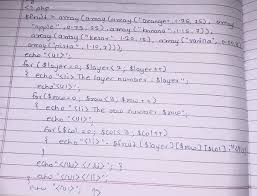 <? php
$fruit = array (array (array ("orange", 1.25, 15), array
"apple", 0.75, 25), array ("banana", 1.15, 7)),
array (array ("kesar", 1.20, 15), array ("vanilla",
array ("pista", 1.10, 7)));
echo "<ul>";
for ($layer=0; $layer<2; $layer++)
{ echo "<li> The layer number $layer";
echo "<ul>";
for ($row=0; $row<3; $row++)
{ echo "<li> The row number $row";
echo "<ul>";
for ($col=0; $col<3; $col++)
{ echo "<li>". $fruit [$layer][$row][$col]."
}
echo "</ul> </li>"; }
echo "</ul></li>";
}
echo "</ol>"; ?>